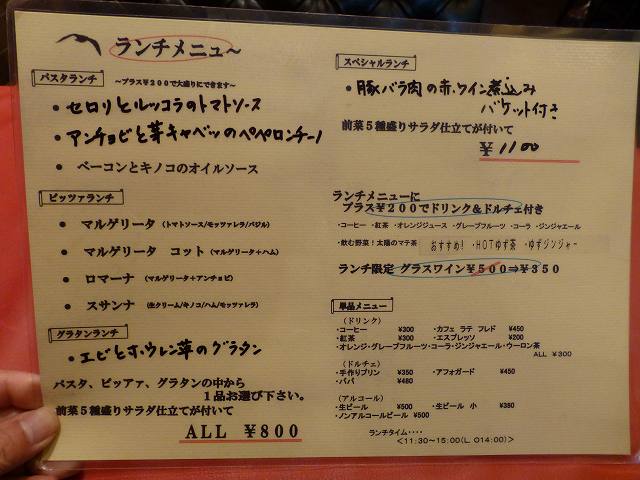 ランチメニュ～
パスタランチ
～プラス¥200で大盛りにできます～
・セロリとルッコラのトマトソース
・アンチョビと芽キャベツのペペロンチーノ
・ベーコンとキノコのオイルソース
ピッツァランチ
・マルゲリータ (トマトソース/モッツァレラ/バジル)
・マルゲリータ コット (マルゲリータ+ハム)
・ロマーナ (マルゲリータ+アンチョビ)
・スサンナ (生クリーム/キノコ/ハム/モッツァレラ)
グラタンランチ
・エビとホウレン草のグラタン
パスタ、ピッツァ、グラタンの中から
1品お選び下さい。
前菜5種盛りサラダ仕立てが付いて
ALL ¥800
スペシャルランチ
・豚バラ肉の赤ワイン煮込み
バケット付き
前菜5種盛りサラダ仕立てが付いて
¥1100
ランチメニューに
プラス¥200でドリンク&ドルチェ付き
・コーヒー ・紅茶 ・オレンジジュース ・グレープフルーツ ・コーラ ・ジンジャエール
・飲む野菜！太陽のマテ茶 おすすめ! ・HOTゆず茶 ・ゆずジンジャー
ランチ限定 グラスワイン¥500⇒¥350
単品メニュー
(ドリンク)
・コーヒー ¥300 ・カフェ ラテ フレド ¥450
・紅茶 ¥300 ・エスプレッソ ¥200
・オレンジ・グレープフルーツ・コーラ・ジンジャエール・ウーロン茶
ALL ¥300
(ドルチェ)
・手作りプリン ¥350 ・アフォガード ¥450
・ババ ¥480
(アルコール)
・生ビール ¥500 ・生ビール 小 ¥380
・ノンアルコールビール ¥500
ランチタイム････
<11:30～15:00(L.O14:00)>